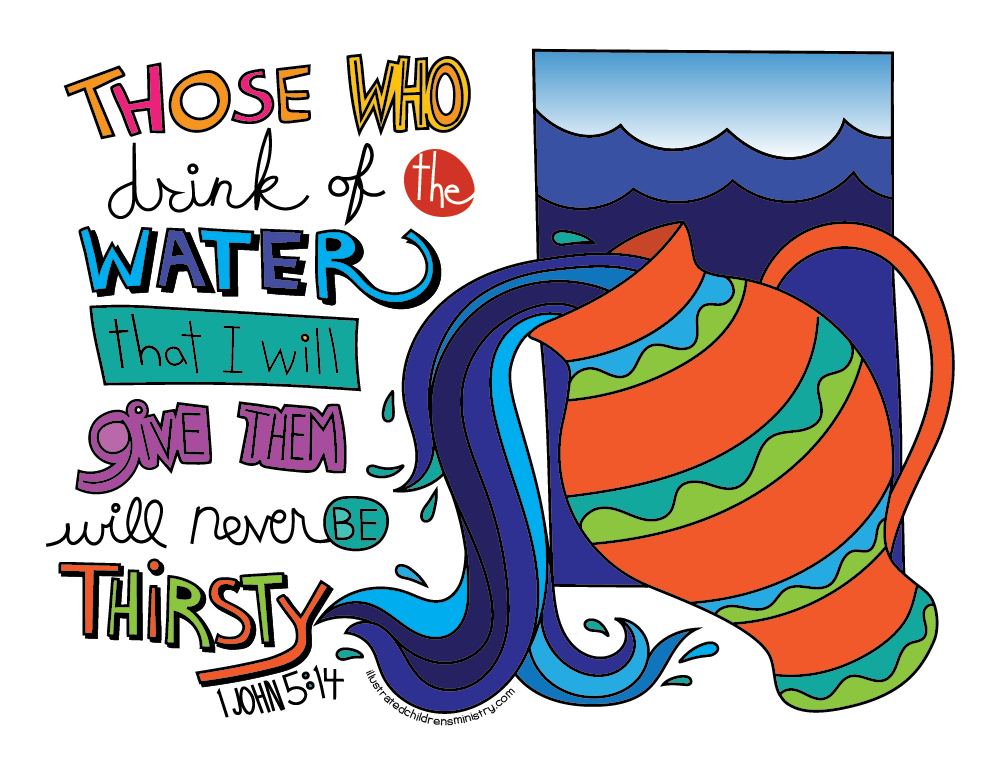 THOSE WHO
drink of the
WATER
that I will
giVE THEM
will never BE
THiRSTY
1 JOHN 5:14
illustratedchildrensministry.com